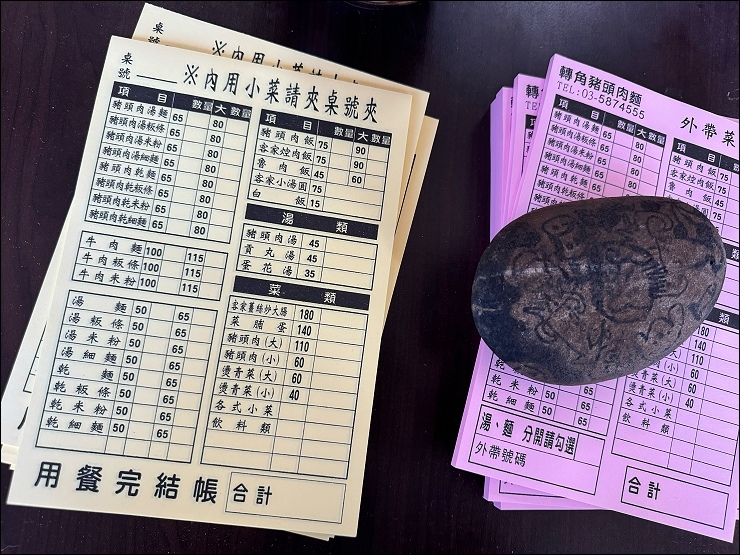 桌號
※內用小菜請夾桌號夾
項 目 數量 大 數量
豬頭肉湯麵 65 80
豬頭肉湯板條 65 80
豬頭肉湯米粉 65 80
豬頭肉湯細麵 65 80
豬頭肉乾麵 65 80
豬頭肉乾板條 65 80
豬頭肉乾米粉 65 80
豬頭肉乾細麵 65 80
牛肉麵 100 115
牛肉板條 100 115
牛肉米粉 100 115
湯麵 50 65
湯板條 50 65
湯米粉 50 65
湯細麵 50 65
乾麵 50 65
乾板條 50 65
乾米粉 50 65
乾細麵 50 65
項 目 數量 大 數量
豬頭肉飯 75 90
客家焢肉飯 75 90
魯肉飯 45 60
客家小湯圓 75
白飯 15
湯 類
豬頭肉湯 45
貢丸湯 45
蛋花湯 35
菜 類
客家薑絲炒大腸 180
菜脯蛋 140
豬頭肉(大) 110
豬頭肉(小) 60
燙青菜(大) 60
燙青菜(小) 40
各式小菜
飲料類
用餐完結帳
合計
轉角豬頭肉麵
TEL:03-5874555
外帶菜
項 目 數量 大 數量
豬頭肉湯麵 65 80
豬頭肉湯板條 65 80
豬頭肉湯米粉 65 80
豬頭肉湯細麵 65 80
豬頭肉乾麵 65 80
豬頭肉乾板條 65
乾米粉 50 65
乾細麵 50 65
湯、麵 分開請勾選
外帶號碼
項 目 數量
豬頭肉飯 75
客家焢肉飯 75
魯肉飯 45
客家小湯圓 75
白飯 15
180
140
110
豬頭肉(小) 60
燙青菜(大) 60
燙青菜(小) 40
各式小菜
飲料類
合計